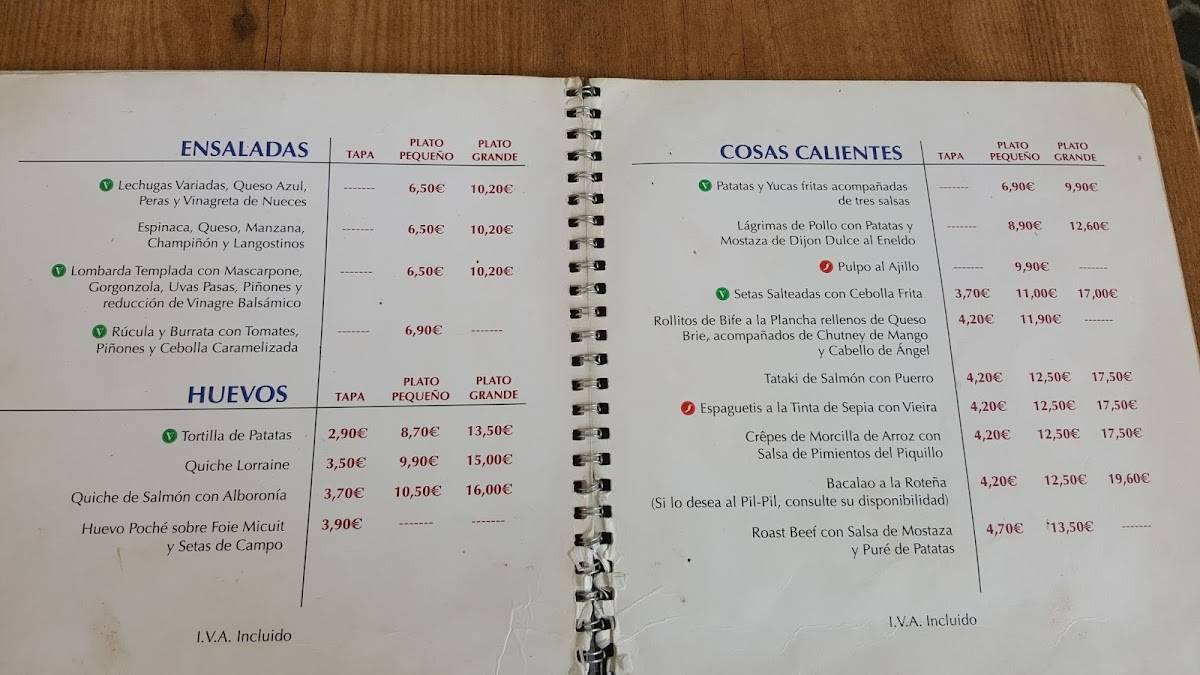 ENSALADAS TAPA PLATO PEQUEÑO PLATO GRANDE
V Lechugas Variadas, Queso Azul, ------- 6,50€ 10,20€
Peras y Vinagreta de Nueces
Espinaca, Queso, Manzana, ------- 6,50€ 10,20€
Champiñón y Langostinos
V Lombarda Templada con Mascarpone, ------- 6,50€ 10,20€
Gorgonzola, Uvas Pasas, Piñones y
reducción de Vinagre Balsámico
V Rúcula y Burrata con Tomates, ------- 6,90€ -------
Piñones y Cebolla Caramelizada
HUEVOS TAPA PLATO PEQUEÑO PLATO GRANDE
V Tortilla de Patatas 2,90€ 8,70€ 13,50€
Quiche Lorraine 3,50€ 9,90€ 15,00€
Quiche de Salmón con Alboronía 3,70€ 10,50€ 16,00€
Huevo Poché sobre Foie Micuit 3,90€ ------- -------
y Setas de Campo
I.V.A. Incluido
COSAS CALIENTES TAPA PLATO PEQUEÑO PLATO GRANDE
V Patatas y Yucas fritas acompañadas ------- 6,90€ 9,90€
de tres salsas
Lágrimas de Pollo con Patatas y ------- 8,90€ 12,60€
Mostaza de Dijon Dulce al Eneldo
J Pulpo al Ajillo ------- 9,90€ -------
V Setas Salteadas con Cebolla Frita 3,70€ 11,00€ 17,00€
Rollitos de Bife a la Plancha rellenos de Queso 4,20€ 11,90€ -------
Brie, acompañados de Chutney de Mango
y Cabello de Ángel
Tataki de Salmón con Puerro 4,20€ 12,50€ 17,50€
J Espaguetis a la Tinta de Sepia con Vieira 4,20€ 12,50€ 17,50€
Crêpes de Morcilla de Arroz con 4,20€ 12,50€ 17,50€
Salsa de Pimientos del Piquillo
Bacalao a la Roteña 4,20€ 12,50€ 19,60€
(Si lo desea al Pil-Pil, consulte su disponibilidad)
Roast Beef con Salsa de Mostaza 4,70€ 13,50€ -------
y Puré de Patatas
I.V.A. Incluido